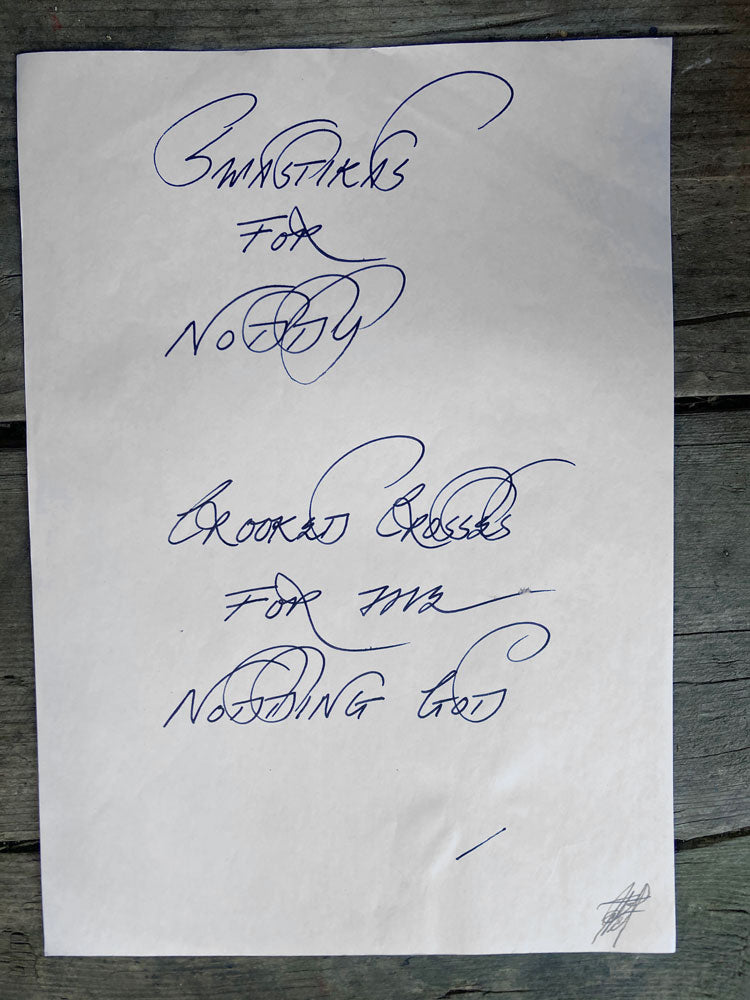 SWASTIKAS
FOR
NODDY
CROOKED CROSSES
FOR THE
NODDING GOD